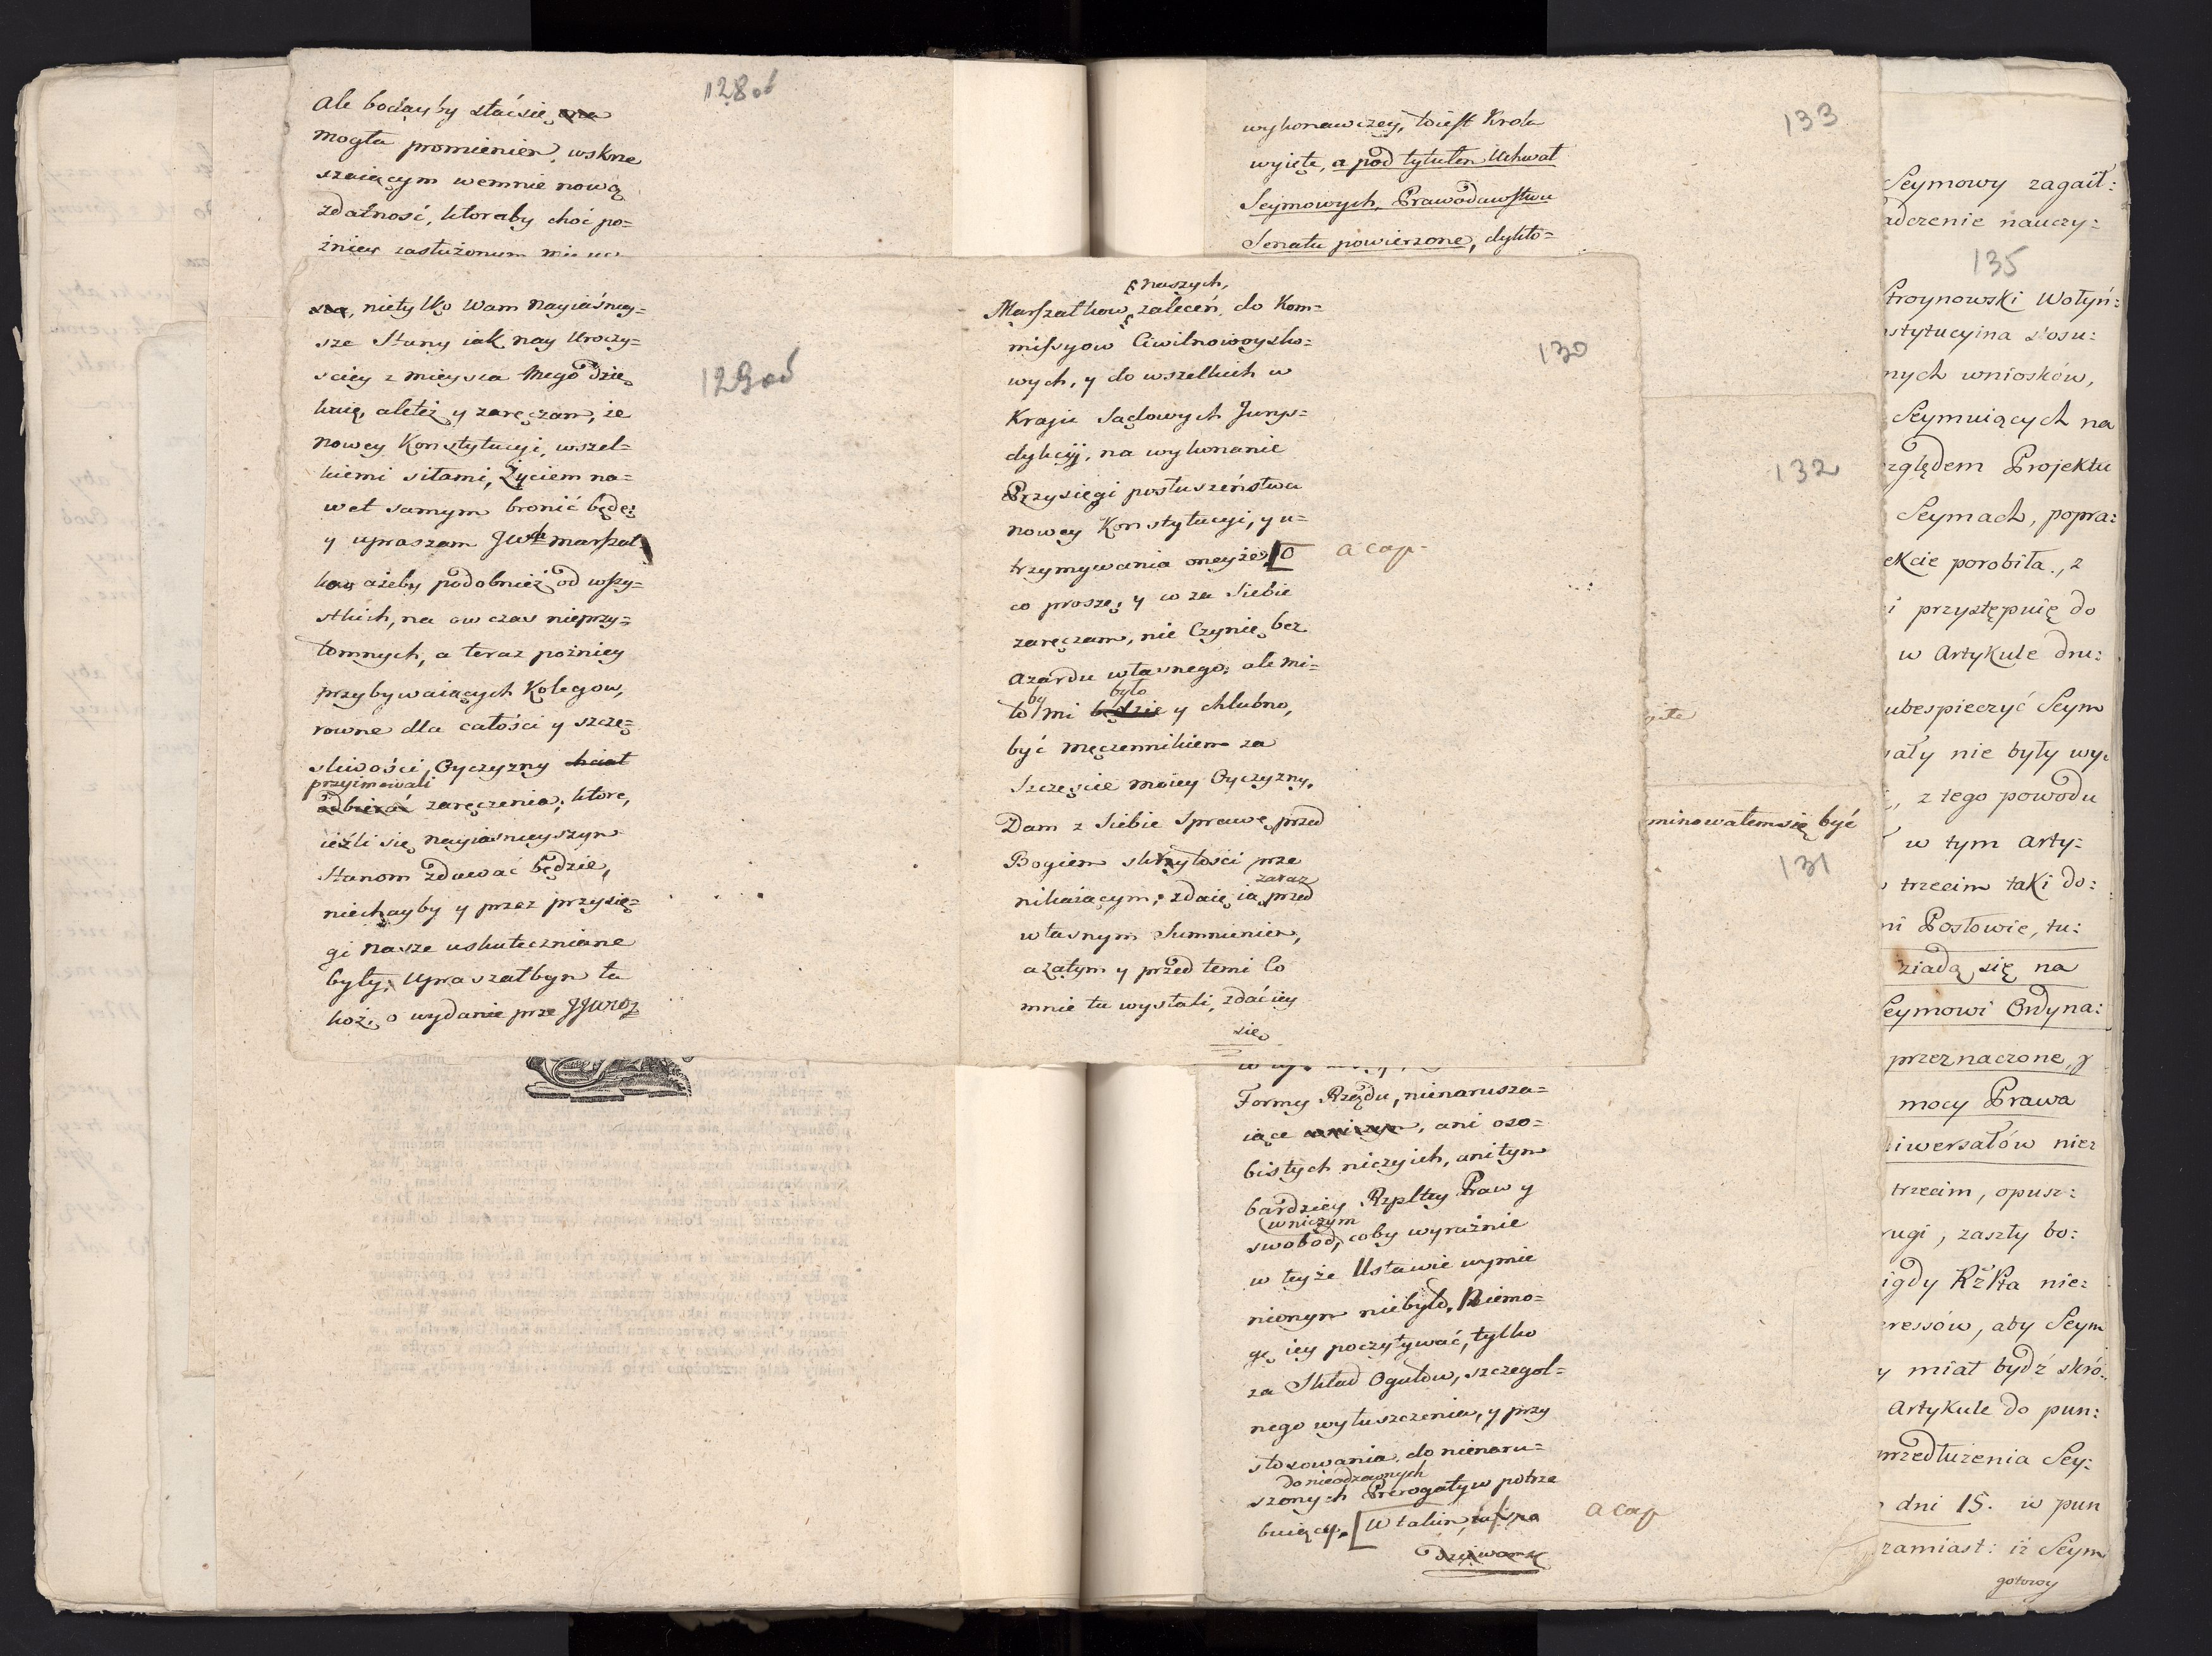 128 od
Ale bodayby stać się ona
mogła promieniem, wskrze
szaiącym wemnie nową
zdatność, ktoraby choć po=
żniey zasłużonym
sza, nietylko Wam Nayiaśniey=
sze Stany iak nay Uroczy=
ściey z mieysca mego dzię
kuię, ale też y zaręczam, że
nowey Konstytucyi, wszel=
kiemi siłami, Życiem na=
wet samym bronić będę;
y upraszam JWch marszał
kow ażeby podobnież od wszy=
stkich, na ow czas nieprzy=
tomnych, a teraz pożniey
przybywaiących Kolegow,
rowne dla całości y szczę=
śliwości Oyczyzny chciał
przyimowali
odbierać zaręczenia; ktore,
ieżli się nayiasnieyszym
Stanom zdawać będzie,
niechayby y przez przysię=
gi nasze uskutecznione
były; Upraszałbym ta
koż, o wydanie prze JJWW
129 od
naszych,
Marszałkow, zaleceń, do Kom=
missyow Ciwilnowoysko=
wych, y do wszelkich w
Kraju Sądowych Jurys=
dykcyj, na wykonanie
Przysięgi posłuszeństwa
nowey Konstytucyi, y u=
trzymywania oneyże; [O a cap
co proszę, y co za siebie
zaręczam, nie Czynię bez
azardu własnego; ale mi=
by było
to mi będzie y chlubno,
być męczennikiem za
Szczęscie moiey Oyczyzny.
Dam z siebie Sprawę przed
Bogiem skrytości prze
zaraz
nikaiącym; zdaię ią przed
własnym Sumnieniem,
a zatym y przed temi Co
mnie tu wysłali, zdać iey
się
130
133
wykonawczey, to iest Krola
wyięte, a pod tytułem Uchwał
Seymowych, Prawodawstwu
Senatu powierzone, dykto=
132
minowałem się być
131
Formy Rządu, nienarusza=
iące, ani oso=
bistych niczyich, ani tym
bardziey Rzpltey Praw y
wniczym
swobod, coby wyraźnie
w teyże Ustawie wymie
nionym niebyło. Niemo=
gę iey poczytywać, tylko
za Skład Ogułow, szczegol=
nego wyłuszczenia, y przy
stosowania, do nienaru=
do nieodzownych
szonych Prerogatyw potrze
buiący. [W takim a cap
Seymowy zagaił:
adczenie nauczy:
135
troynowski Wołyń:
nstytucyina stosu:
nych wniosków,
Seymuiących na
zględem Projektu
Seymach, popra:
ekcie porobiła., z
i przystępuię do
w Artykule dru:
ubespieczyć Seym
ały nie były wy:
, z tego powodu
w tym Arty:
trzecim taki do:
ni Posłowie, tu:
ziadą się na
Seymowi Ordyna:
przeznaczone, y
mocy Prawa
niwersałów niez
trzecim, opusz:
rugi, zaszły bo:
igdy RzPta nie:
ressów, aby Seym
y miał bydź skró:
Artykule do pun:
przedłużenia Sey:
dni 15. w pun
zamiast: iż Seym
gotowy